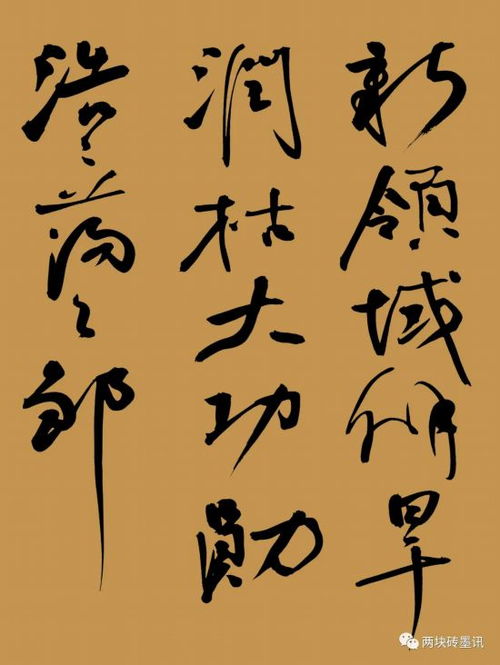 新領域旱
潤枯大功勛
浩々蕩々
两块砖墨讯